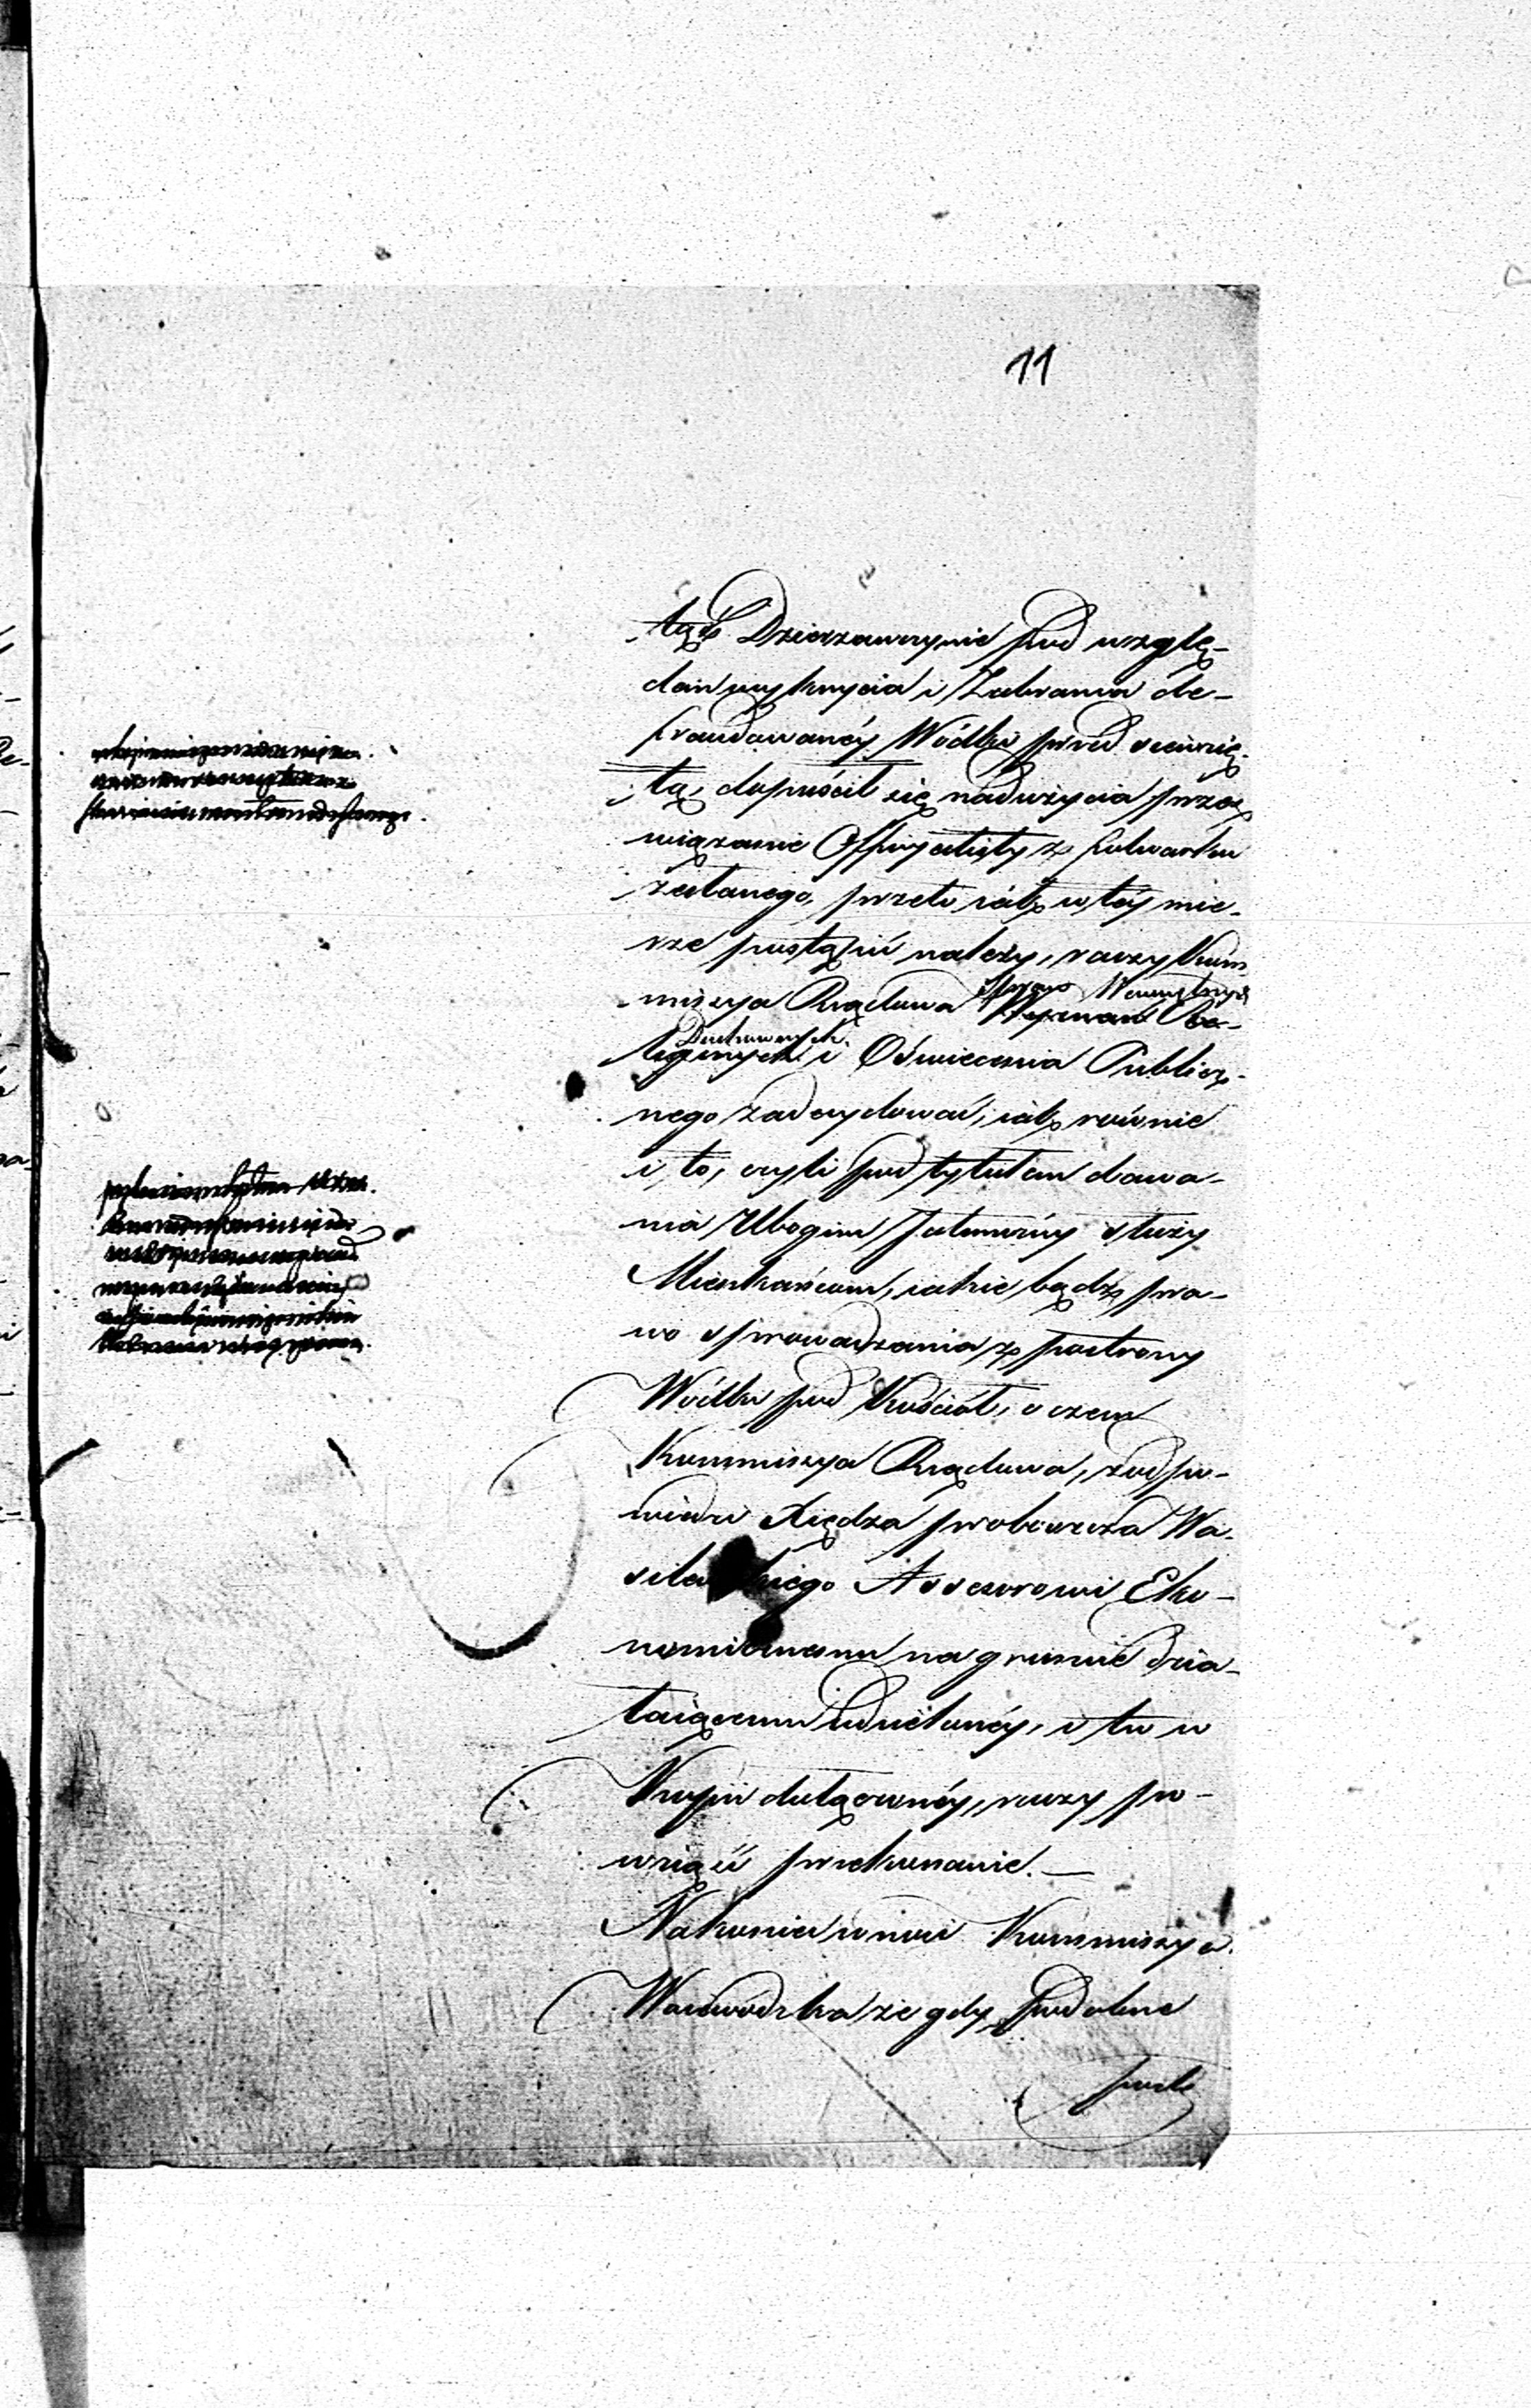 11
tąż Dzierzawczynie pod wzglę-
dem wykrycia i Zabrania de-
fraudowanéj Wódki przed
tą, dopuścił się nadużycia przez
wiązanie Officyalisty z folwarku
zesłanego, przeto iak w téj mie-
rze postąpić należy, raczy Kom-
missya Rządowa Spraw Wewnętrznych
Wyznań Re-
Duchownych
ligijnych i Oświecenia Publicz-
nego zadecydować, iak równie
i to, czyli pod tytułem dawa-
nia Ubogim Jałmużny służy
Mieszkańcom, iakie bądź pra-
wo sprowadzania z postrony
Wódki pod Kościół, o czem
Kommissya Rządowa, z odpo-
wiedzi Xiędza proboszcza Wa-
Assessorowi Eko-
nomicznemu na gruncie dzia-
łaiącemu udzielonéy, i tu w
Kopii dołączonéy, raczy po-
wziąść przekonanie. —
Nakoniec wnosi Kommissya
Woiewódzka że gdy podobne